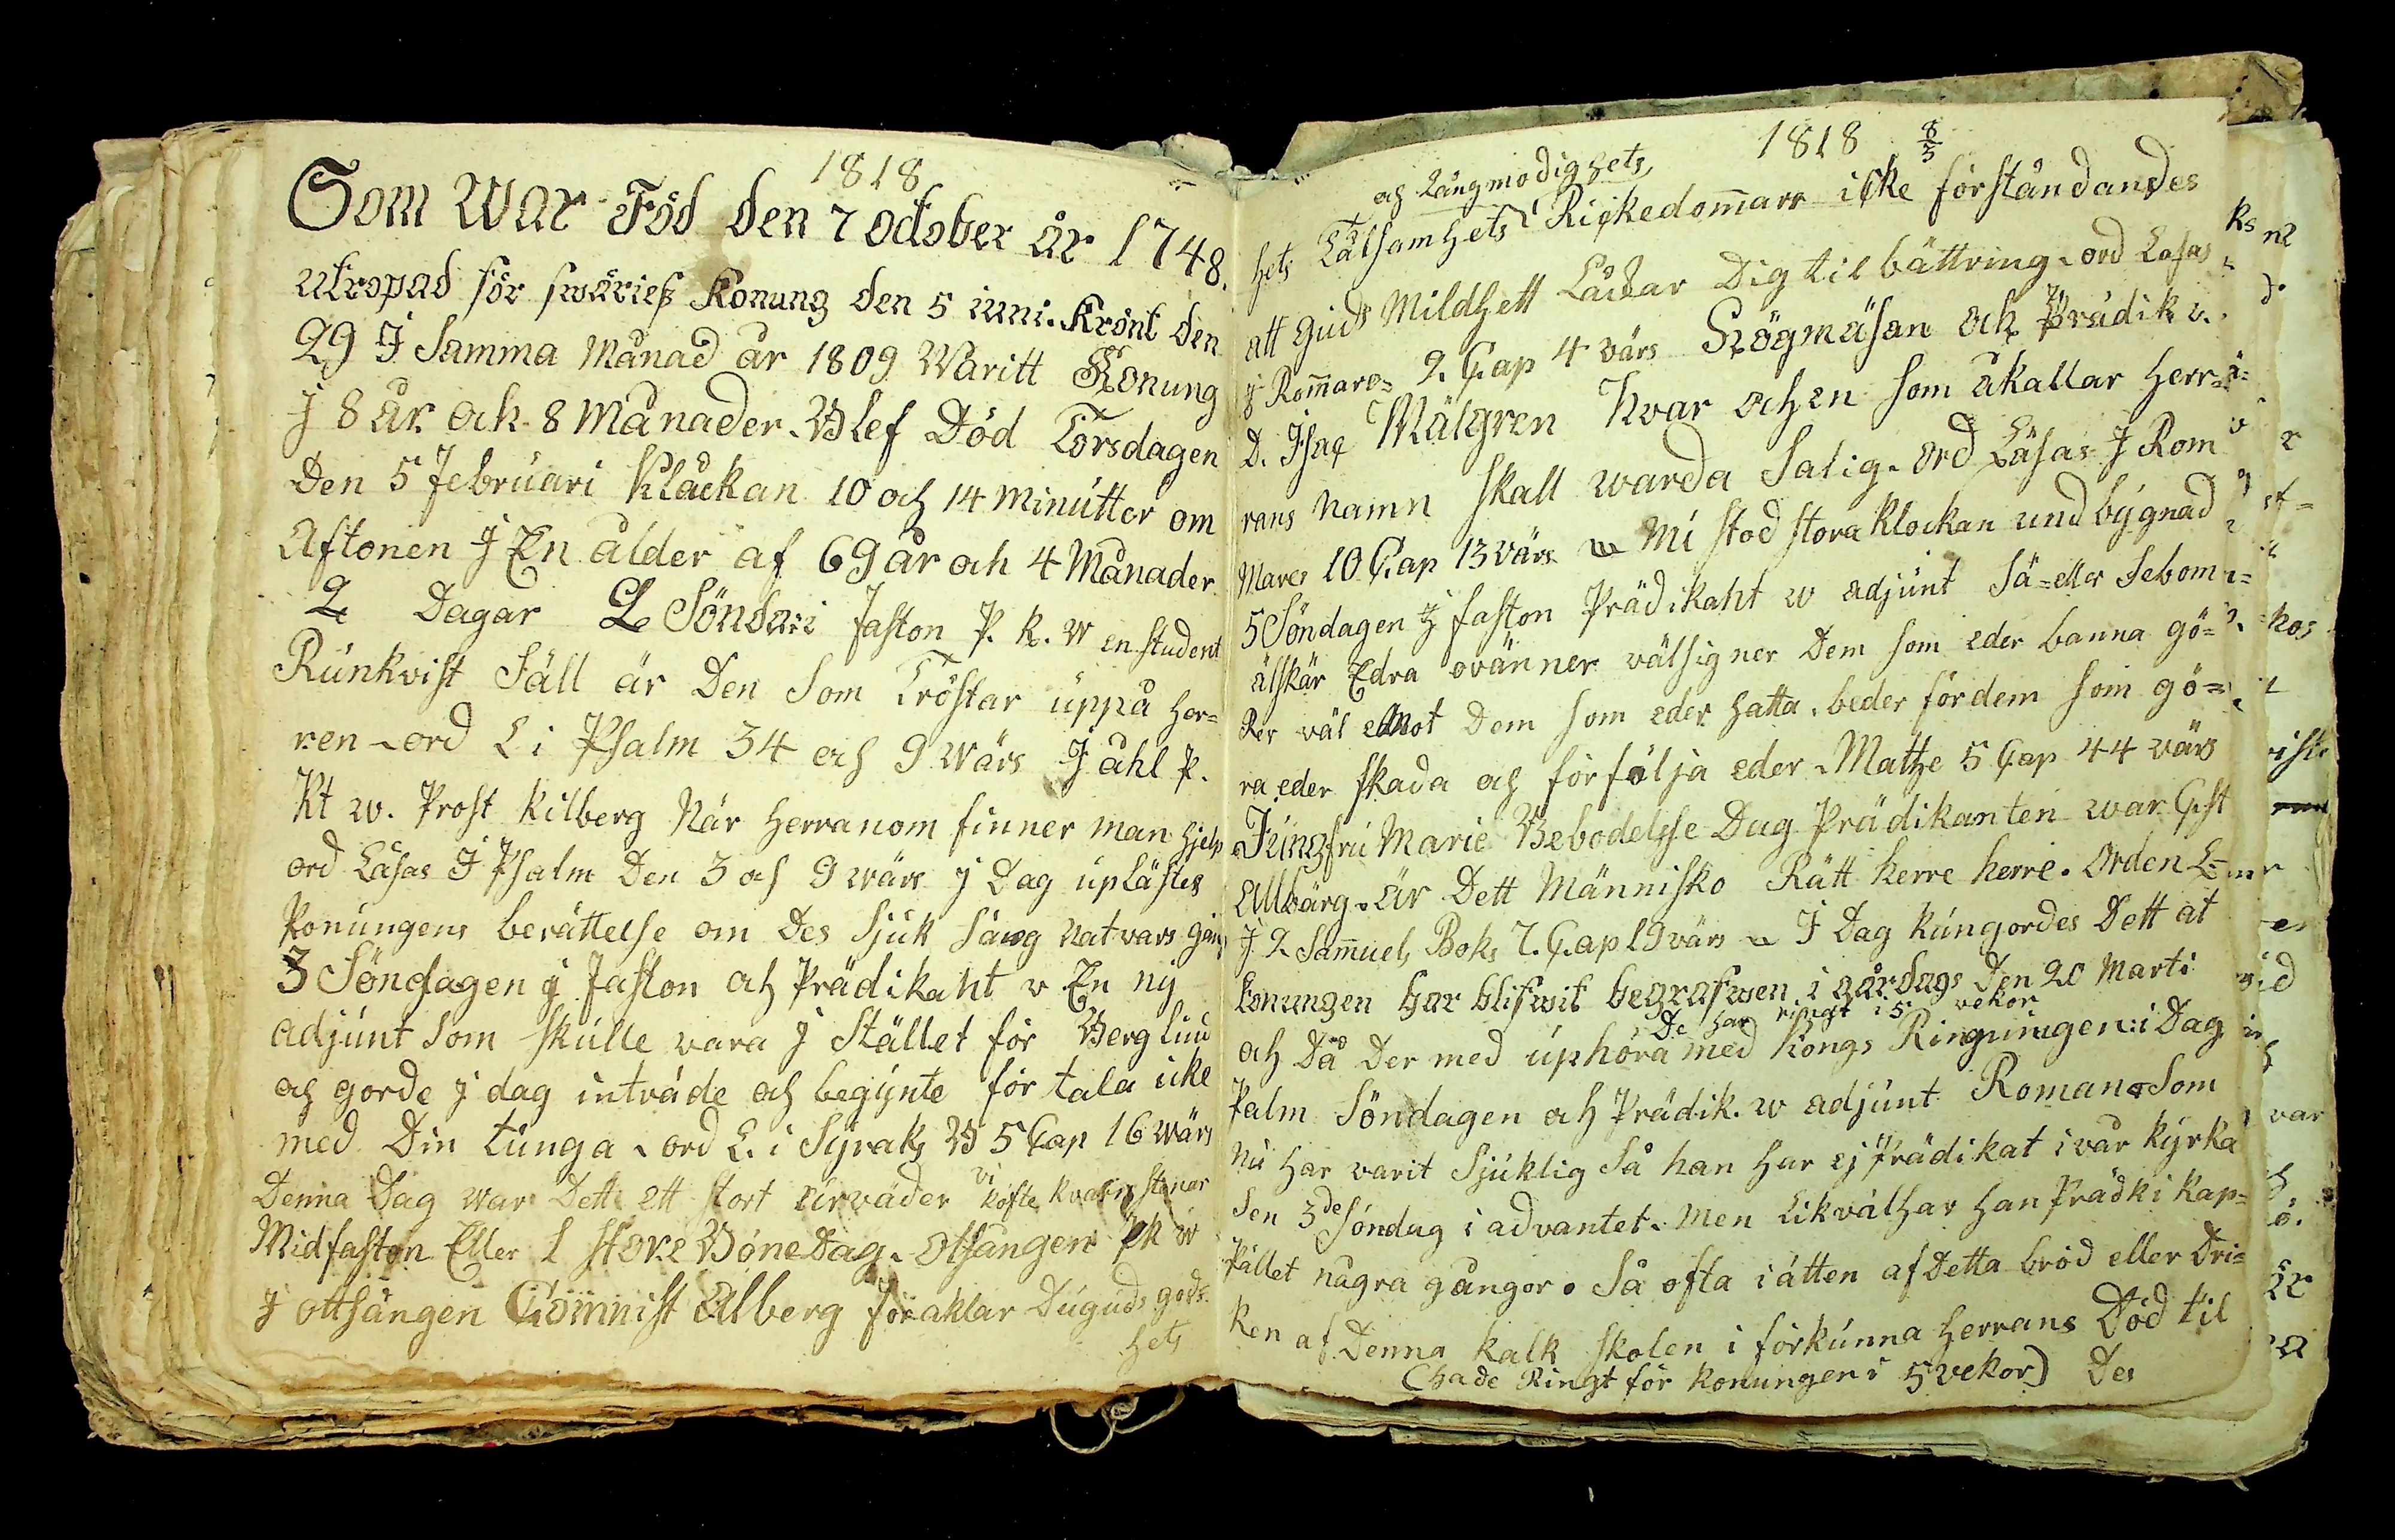 1818
Som War Föd den 7 october år 1748.
utropad för swäries Konung den 5 iuni. Krönt den
29 J Samma Månad år 1809 Waritt Konung
J 8 år och 8 Månader. Blef Död Torsdagen
Den 5 Februari Klåckan 10 och 14 minutter om
Aftonen J En ålder af 69 år och 4 Månader
2 Dagar 2 Söndag i faston P. K. W en student
Runkvist Säll är Den Som Tröstar uppå her=
ren - ord L i Psalm 34 och 9 Wärs J ahl P.
Kt w. Prost Kilberg När Herranom finner man hjelp
ord Läsas J Psalm Den 3 och 9 wärs j Dag upLästes
Konungens berättelse om Des Sjuk Säng Natvars gång
3 Söndagen j faston och Prädikaht v En ny
adjunt som skulle vara J Stället för Berg Lind
och gorde j dag inträde och begynte för tala icke
med Din tunga - ord L. i Syraks B 5 Cap 16 Wärs
Denna Dag war Dett ett stort urväder vi köfte kvarn stenar
Midfaston Eller 1 store Böne Dag. otsangen Pk w
J ottsången Comnist Alberg föraklar Du guds gods
hets
1818 8/3
och Långmodighets
hets Tålsamhets Rickedomar icke förståndandes
att Guds Mildhett Låckar Dig til bättring. ord Läsas
J Romare= 2. Cap 4 värs Högmäsan och Prädik v.
D. Isac Mälgren Hvar och en som åkallar Herr=
rans namn skall warda Salig. ord Läsas J Rom
Mares 10 Cap 13 värs Nu stod stora Klockan und bygnad
5 Söndagen J faston Prädikaht w adjunt Sä= eller Sebom
älskär Edra ovänner välsigner Dem som eder banna gö=
Rer väl Emot Dem som eder hatta. beder för dem som gö=
ra eder skada och förfölja eder. Mathe 5 Cap 44 värs
Jungfru Marie Bebodelse Dag Prädikanten war Cst
Allbärg. är Dett Människo Rätt herre herre. Orden L=
J 2 Samuels Boks 7. Cap 19 värs J Dag kungordes Dett at
konungen har blifwit begrafwen i gårdags Den 20 Marti
De har ringt i 5 vekor
och Då Der med uphöra med Kongs Ringningen: i Dag
Palm Söndagen och Prädik. w adjunt Roman. Som
Nu har varit Sjuklig Så han har ej Prädikat i vår kyrka
Sen 3de söndag i advantet. Men Likväl har han Prädk i Kap=
Pället några gångor. Så ofta i ätten af Detta bröd eller Dri=
ken af Denna kalk skolen i förkunna Herrans Död til
(hade Ringt för konungen i 5 vekor) Des